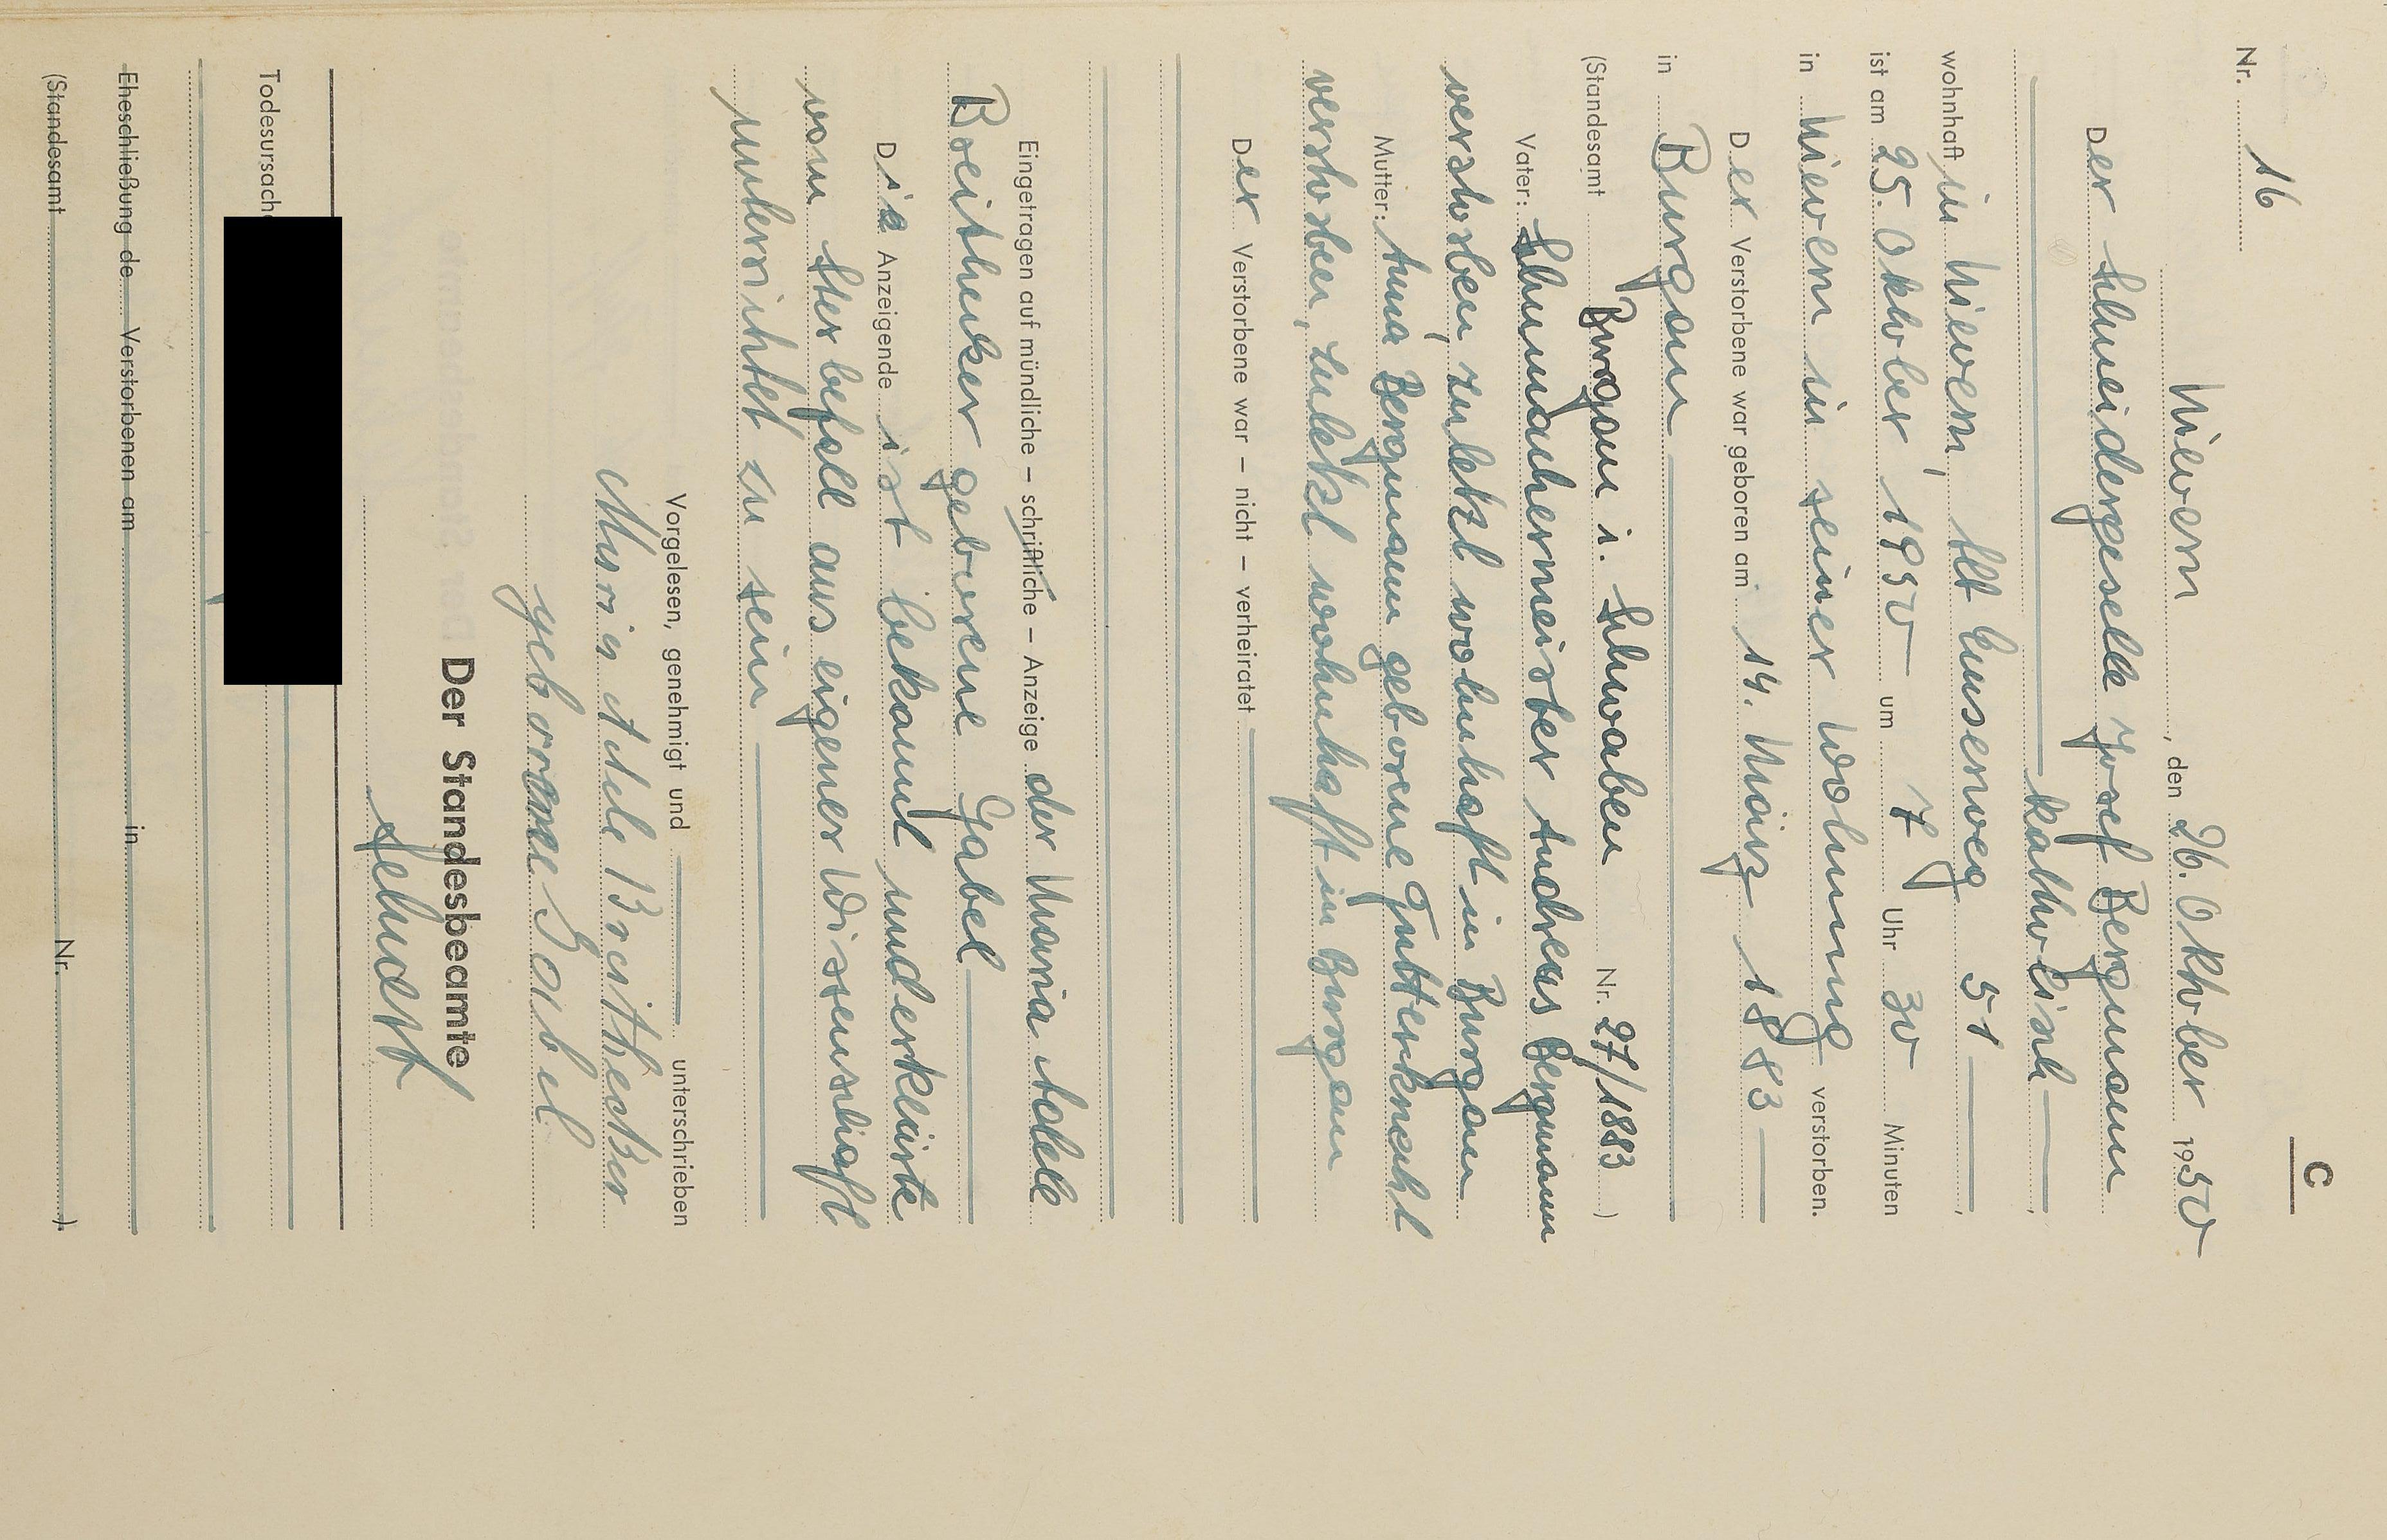 C
Nr. 16
Nievern, den 26. Oktober 1950
Der Schneidergeselle Josef Bergmann
katholisch
wohnhaft in Nievern, Alt Emserweg 51
ist am 25. Oktober 1950 um 7 Uhr 30 Minuten
in Nievern in seiner Wohnung verstorben.
Der Verstorbene war geboren am 14. März 1883
in Burgau
(Standesamt Burgau i. Schwaben Nr. 27/1883)
Vater: Schumachermeister Andreas Bergmann
verstorben, zuletzt wohnhaft in Burgau
Mutter: Anna Bergmann geborene Gutterknecht
verstorben, zuletzt wohnhaft in Burgau
Der Verstorbene war – nicht – verheiratet
Eingetragen auf mündliche – schriftliche – Anzeige der Maria Adele
Breithecker geborene Gabel
Die Anzeigende ist bekannt und erklärte
vom Sterbefall aus eigener Wissenschaft
unterrichtet zu sein
Vorgelesen, genehmigt und unterschrieben
Maria Adele Breithecker
geborene Gabel
Der Standesbeamte
Todesursache
Eheschließung de Verstorbenen am in
(Standesamt Nr. )